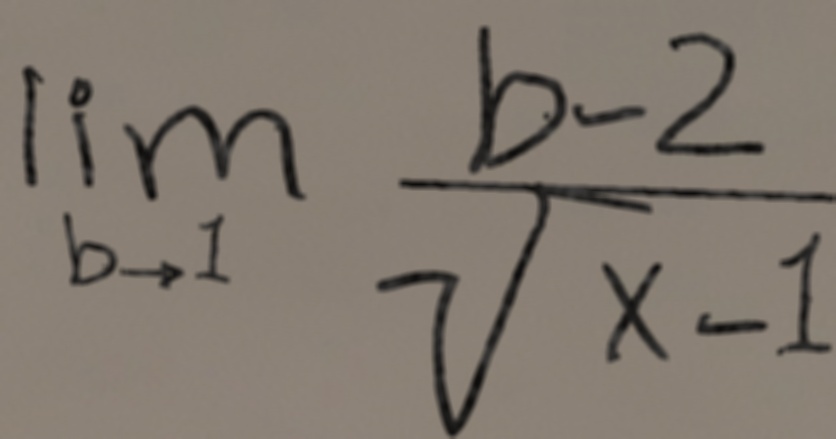 \lim_{b \to 1} \frac{b-2}{\sqrt{x-1}}